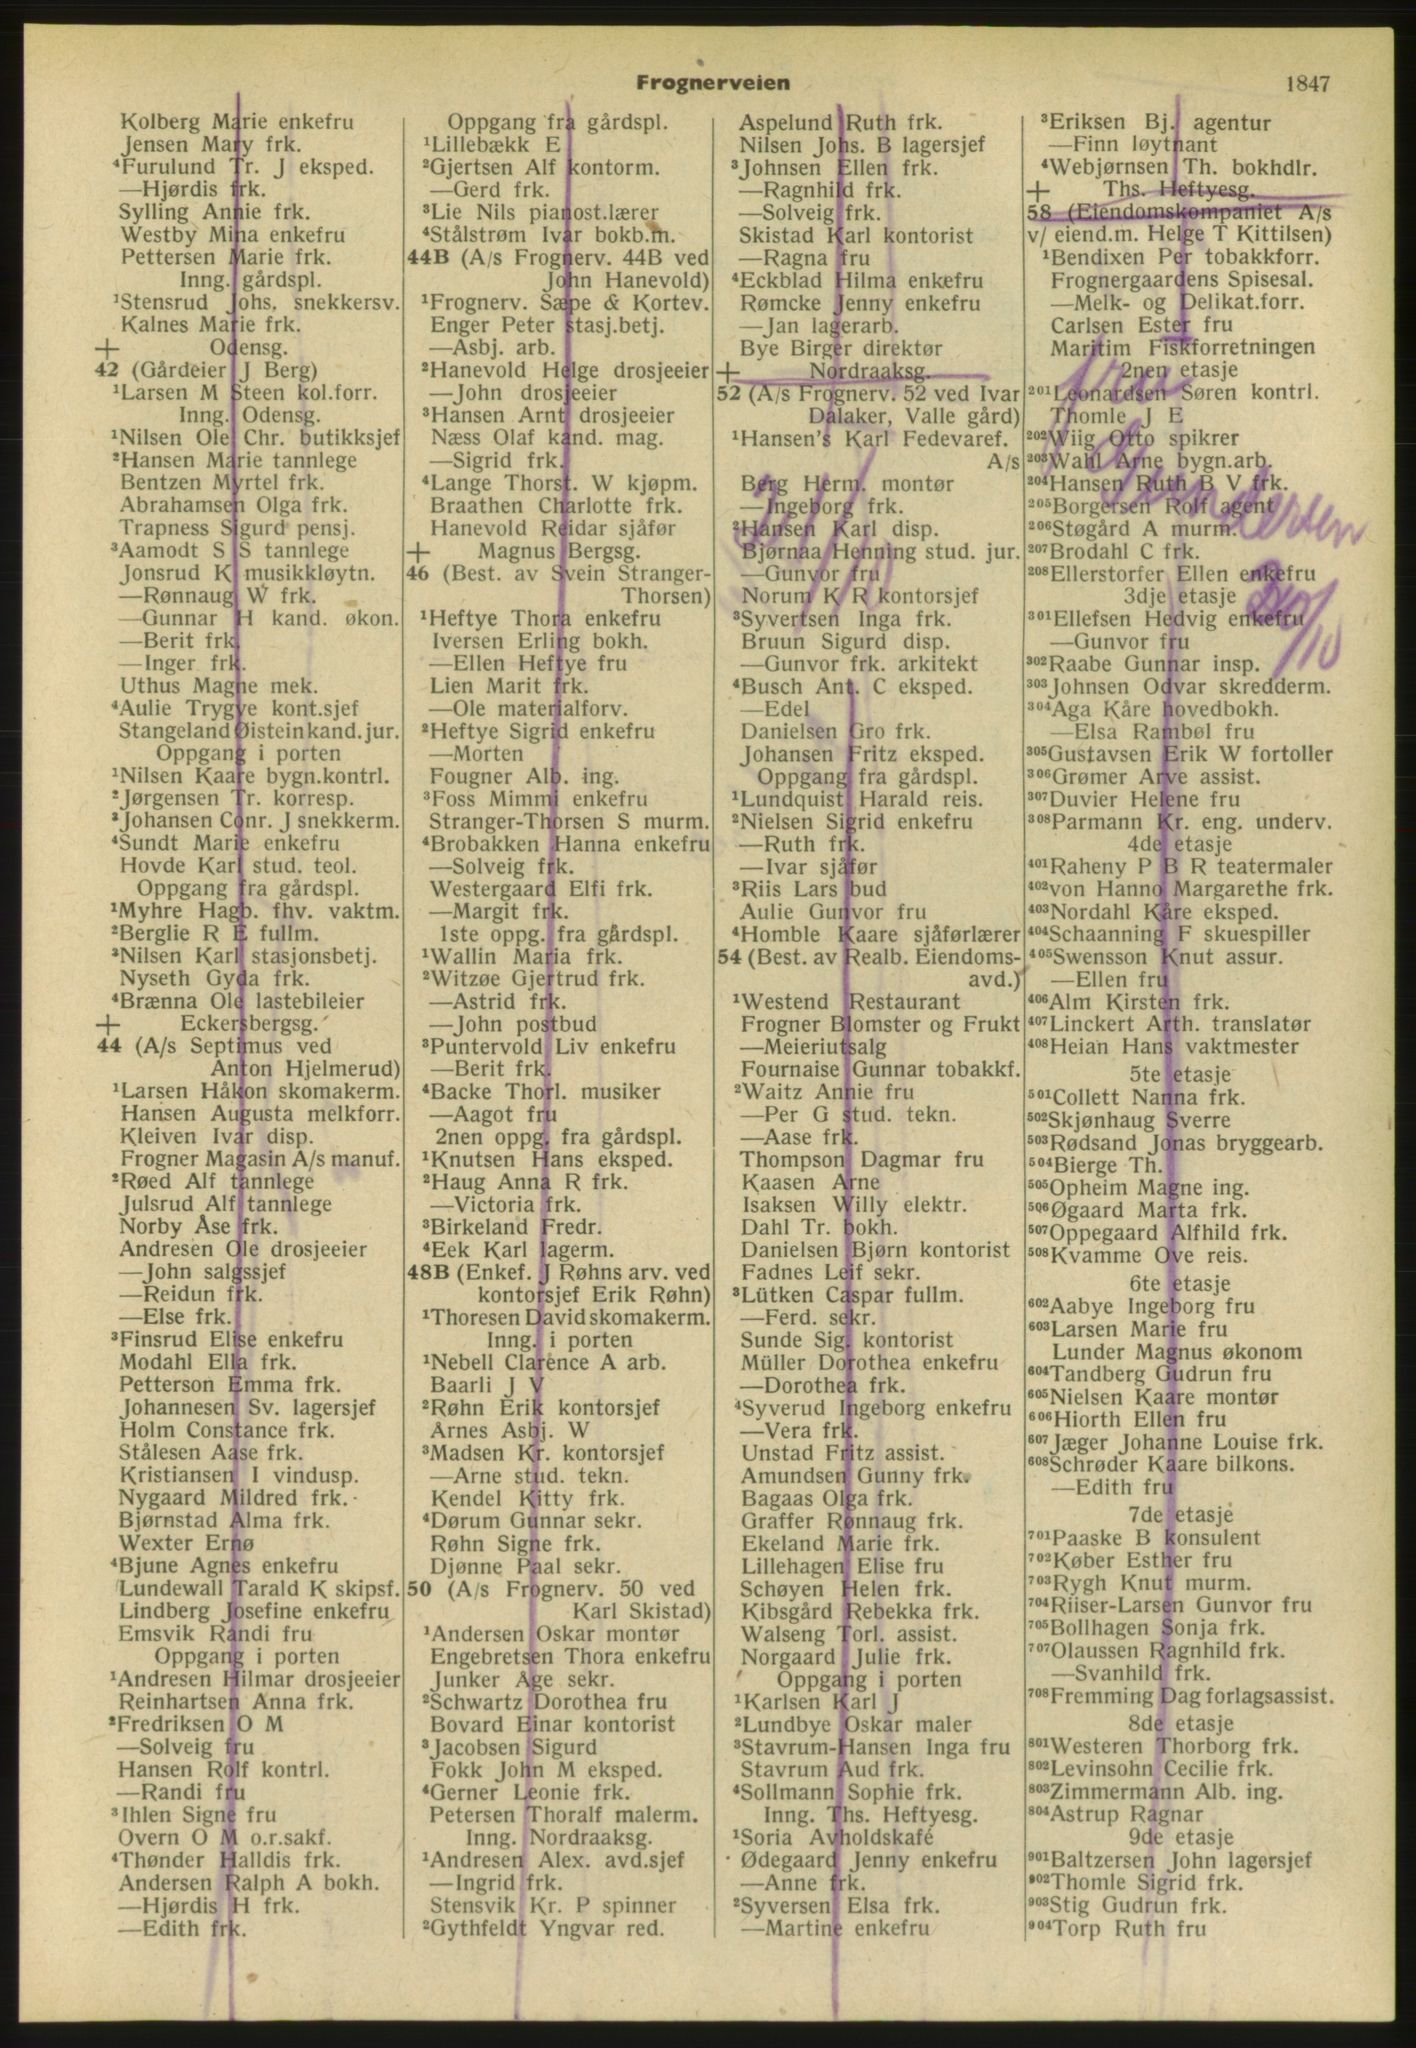 Frognerveien
1847
Kolberg Marie enkefru
Jensen Mary frk.
⁴Furulund Tr. J eksped.
—Hjørdis frk.
Sylling Annie frk.
Westby Mina enkefru
Pettersen Marie frk.
Inng. gårdspl.
¹Stensrud Johs. snekkersv.
Kalnes Marie frk.
+ Odensg.
42 (Gårdeier J Berg)
¹Larsen M Steen kol.forr.
Inng. Odensg.
¹Nilsen Ole Chr. butikksjef
²Hansen Marie tannlege
Bentzen Myrtel frk.
Abrahamsen Olga frk.
Trapness Sigurd pensj.
³Aamodt S S tannlege
Jonsrud K musikkløytn.
—Rønnaug W frk.
—Gunnar H kand. økon.
—Berit frk.
—Inger frk.
Uthus Magne mek.
⁴Aulie Trygve kont.sjef
Stangeland Øistein kand. jur.
Oppgang i porten
¹Nilsen Kaare bygn.kontrl.
²Jørgensen Tr. korresp.
³Johansen Conr. J snekkerm.
⁴Sundt Marie enkefru
Hovde Karl stud. teol.
Oppgang fra gårdspl.
¹Myhre Hagb. fhv. vaktm.
²Berglie R E fullm.
³Nilsen Karl stasjonsbetj.
Nyseth Gyda frk.
⁴Brænna Ole lastebileier
+ Eckersbergsg.
44 (A/s Septimus ved
Anton Hjelmerud)
¹Larsen Håkon skomakerm.
Hansen Augusta melkforr.
Kleiven Ivar disp.
Frogner Magasin A/s manuf.
²Røed Alf tannlege
Julsrud Alf tannlege
Norby Åse frk.
Andresen Ole drosjeeier
—John salgssjef
—Reidun frk.
—Else frk.
³Finsrud Elise enkefru
Modahl Ella frk.
Petterson Emma frk.
Johannesen Sv. lagersjef
Holm Constance frk.
Stålesen Aase frk.
Kristiansen I vindusp.
Nygaard Mildred frk.
Bjørnstad Alma frk.
Wexter Ernø
⁴Bjune Agnes enkefru
Lundewall Tarald K skipsf.
Lindberg Josefine enkefru
Emsvik Randi fru
Oppgang i porten
¹Andresen Hilmar drosjeeier
Reinhartsen Anna frk.
²Fredriksen O M
—Solveig fru
Hansen Rolf kontrl.
—Randi fru
³Ihlen Signe fru
Overn O M o.r.sakf.
⁴Thønder Halldis frk.
Andersen Ralph A bokh.
—Hjørdis H frk.
—Edith frk.
Oppgang fra gårdspl.
¹Lillebækk E
²Gjertsen Alf kontorm.
—Gerd frk.
³Lie Nils pianost.lærer
⁴Stålstrøm Ivar bokb.m.
44B (A/s Frognerv. 44B ved
John Hanevold)
¹Frognerv. Sæpe & Kortev.
Enger Peter stasj.betj.
—Asbj. arb.
²Hanevold Helge drosjeeier
—John drosjeeier
³Hansen Arnt drosjeeier
Næss Olaf kand. mag.
—Sigrid frk.
⁴Lange Thorst. W kjøpm.
Braathen Charlotte frk.
Hanevold Reidar sjåfør
+ Magnus Bergsg.
46 (Best. av Svein Stranger-
Thorsen)
¹Heftye Thora enkefru
Iversen Erling bokh.
—Ellen Heftye fru
Lien Marit frk.
—Ole materialforv.
²Heftye Sigrid enkefru
—Morten
Fougner Alb. ing.
³Foss Mimmi enkefru
Stranger-Thorsen S murm.
⁴Brobakken Hanna enkefru
—Solveig frk.
Westergaard Elfi frk.
—Margit frk.
1ste oppg. fra gårdspl.
¹Wallin Maria frk.
²Witzøe Gjertrud frk.
—Astrid frk.
—John postbud
³Puntervold Liv enkefru
—Berit frk.
⁴Backe Thorl. musiker
—Aagot fru
2nen oppg. fra gårdspl.
¹Knutsen Hans eksped.
²Haug Anna R frk.
—Victoria frk.
³Birkeland Fredr.
⁴Eek Karl lagerm.
48B (Enkef. J Røhns arv. ved
kontorsjef Erik Røhn)
¹Thoresen David skomakerm.
Inng. i porten
¹Nebell Clarence A arb.
Baarli J V
²Røhn Erik kontorsjef
Årnes Asbj. W
³Madsen Kr. kontorsjef
—Arne stud. tekn.
Kendel Kitty frk.
⁴Dørum Gunnar sekr.
Røhn Signe frk.
Djønne Paal sekr.
50 (A/s Frognerv. 50 ved
Karl Skistad)
¹Andersen Oskar montør
Engebretsen Thora enkefru
Junker Åge sekr.
²Schwartz Dorothea fru
Bovard Einar kontorist
³Jacobsen Sigurd
Fokk John M eksped.
⁴Gerner Leonie frk.
Petersen Thoralf malerm.
Inng. Nordraaksg.
¹Andresen Alex. avd.sjef
—Ingrid frk.
Stensvik Kr. P spinner
²Gythfeldt Yngvar red.
Aspelund Ruth frk.
Nilsen Johs. B lagersjef
³Johnsen Ellen frk.
—Ragnhild frk.
—Solveig frk.
Skistad Karl kontorist
—Ragna fru
⁴Eckblad Hilma enkefru
Rømcke Jenny enkefru
—Jan lagerarb.
Bye Birger direktør
+ Nordraaksg.
52 (A/s Frognerv. 52 ved Ivar
Dalaker, Valle gård)
¹Hansen's Karl Fedevaref.
A/s
Berg Herm. montør
—Ingeborg frk.
²Hansen Karl disp.
Bjørnaa Henning stud. jur.
—Gunvor fru
Norum K R kontorsjef
³Syvertsen Inga frk.
Bruun Sigurd disp.
—Gunvor frk. arkitekt
⁴Busch Ant. C eksped.
—Edel
Danielsen Gro frk.
Johansen Fritz eksped.
Oppgang fra gårdspl.
¹Lundquist Harald reis.
²Nielsen Sigrid enkefru
—Ruth frk.
—Ivar sjåfør
³Riis Lars bud
Aulie Gunvor fru
⁴Homble Kaare sjåførlærer
54 (Best. av Realb. Eiendoms-
avd.)
¹Westend Restaurant
Frogner Blomster og Frukt
—Meieriutsalg
Fournaise Gunnar tobakkf.
²Waitz Annie fru
—Per G stud. tekn.
—Aase frk.
Thompson Dagmar fru
Kaasen Arne
Isaksen Willy elektr.
Dahl Tr. bokh.
Danielsen Bjørn kontorist
Fadnes Leif sekr.
³Lütken Caspar fullm.
—Ferd. sekr.
Sunde Sig. kontorist
Müller Dorothea enkefru
—Dorothea frk.
⁴Syverud Ingeborg enkefru
—Vera frk.
Unstad Fritz assist.
Amundsen Gunny frk.
Bagaas Olga frk.
Graffer Rønnaug frk.
Ekeland Marie frk.
Lillehagen Elise fru
Schøyen Helen frk.
Kibsgård Rebekka frk.
Walseng Torl. assist.
Norgaard Julie frk.
Oppgang i porten
¹Karlsen Karl J
²Lundbye Oskar maler
³Stavrum-Hansen Inga fru
Stavrum Aud frk.
⁴Sollmann Sophie frk.
Inng. Ths. Heftyesg.
¹Soria Avholdskafé
Ødegaard Jenny enkefru
—Anne frk.
²Syversen Elsa frk.
—Martine enkefru
³Eriksen Bj. agentur
—Finn løytnant
⁴Webjørnsen Th. bokhdlr.
+ Ths. Heftyesg.
58 (Eiendomskompaniet A/s
v/ eiend.m. Helge T Kittilsen)
¹Bendixen Per tobakkforr.
Frognergaardens Spisesal.
—Melk- og Delikat.forr.
Carlsen Ester fru
Maritim Fiskforretningen
2nen etasje
²⁰¹Leonardsen Søren kontrl.
Thomle J E
²⁰²Wiig Otto spikrer
²⁰³Wahl Arne bygn.arb.
²⁰⁴Hansen Ruth B V frk.
²⁰⁵Borgersen Rolf agent
²⁰⁶Støgård A murm.
²⁰⁷Brodahl C frk.
²⁰⁸Ellerstorfer Ellen enkefru
3dje etasje
³⁰¹Ellefsen Hedvig enkefru
—Gunvor fru
³⁰²Raabe Gunnar insp.
³⁰³Johnsen Odvar skredderm.
³⁰⁴Aga Kåre hovedbokh.
—Elsa Rambøl fru
³⁰⁵Gustavsen Erik W fortoller
³⁰⁶Grømer Arve assist.
³⁰⁷Duvier Helene fru
³⁰⁸Parmann Kr. eng. underv.
4de etasje
⁴⁰¹Raheny P B R teatermaler
⁴⁰²von Hanno Margarethe frk.
⁴⁰³Nordahl Kåre eksped.
⁴⁰⁴Schaanning F skuespiller
⁴⁰⁵Swensson Knut assur.
—Ellen fru
⁴⁰⁶Alm Kirsten frk.
⁴⁰⁷Linckert Arth. translatør
⁴⁰⁸Heian Hans vaktmester
5te etasje
⁵⁰¹Collett Nanna frk.
⁵⁰²Skjønhaug Sverre
⁵⁰³Rødsand Jonas bryggearb.
⁵⁰⁴Bierge Th.
⁵⁰⁵Opheim Magne ing.
⁵⁰⁶Øgaard Marta frk.
⁵⁰⁷Oppegaard Alfhild frk.
⁵⁰⁸Kvamme Ove reis.
6te etasje
⁶⁰²Aabye Ingeborg fru
⁶⁰³Larsen Marie fru
Lunder Magnus økonom
⁶⁰⁴Tandberg Gudrun fru
⁶⁰⁵Nielsen Kaare montør
⁶⁰⁶Hiorth Ellen fru
⁶⁰⁷Jæger Johanne Louise frk.
⁶⁰⁸Schrøder Kaare bilkons.
—Edith fru
7de etasje
⁷⁰¹Paaske B konsulent
⁷⁰²Køber Esther fru
⁷⁰³Rygh Knut murm.
⁷⁰⁴Riiser-Larsen Gunvor fru
⁷⁰⁵Bollhagen Sonja frk.
⁷⁰⁷Olaussen Ragnhild frk.
—Svanhild frk.
⁷⁰⁸Fremming Dag forlagsassist.
8de etasje
⁸⁰¹Westeren Thorborg frk.
⁸⁰²Levinsohn Cecilie frk.
⁸⁰³Zimmermann Alb. ing.
⁸⁰⁴Astrup Ragnar
9de etasje
⁹⁰¹Baltzersen John lagersjef
⁹⁰²Thomle Sigrid frk.
⁹⁰³Stig Gudrun frk.
⁹⁰⁴Torp Ruth fru
fru
Gundersen